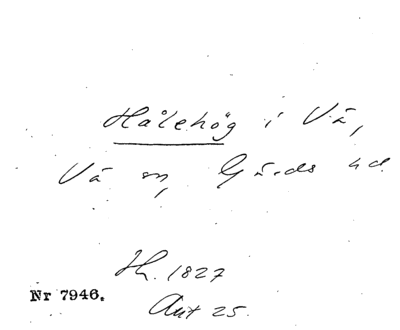 Hålehög i Vä,
Vä sn, Gärds hd.
Hh. 1827
Nr 7946.
Ant 25.